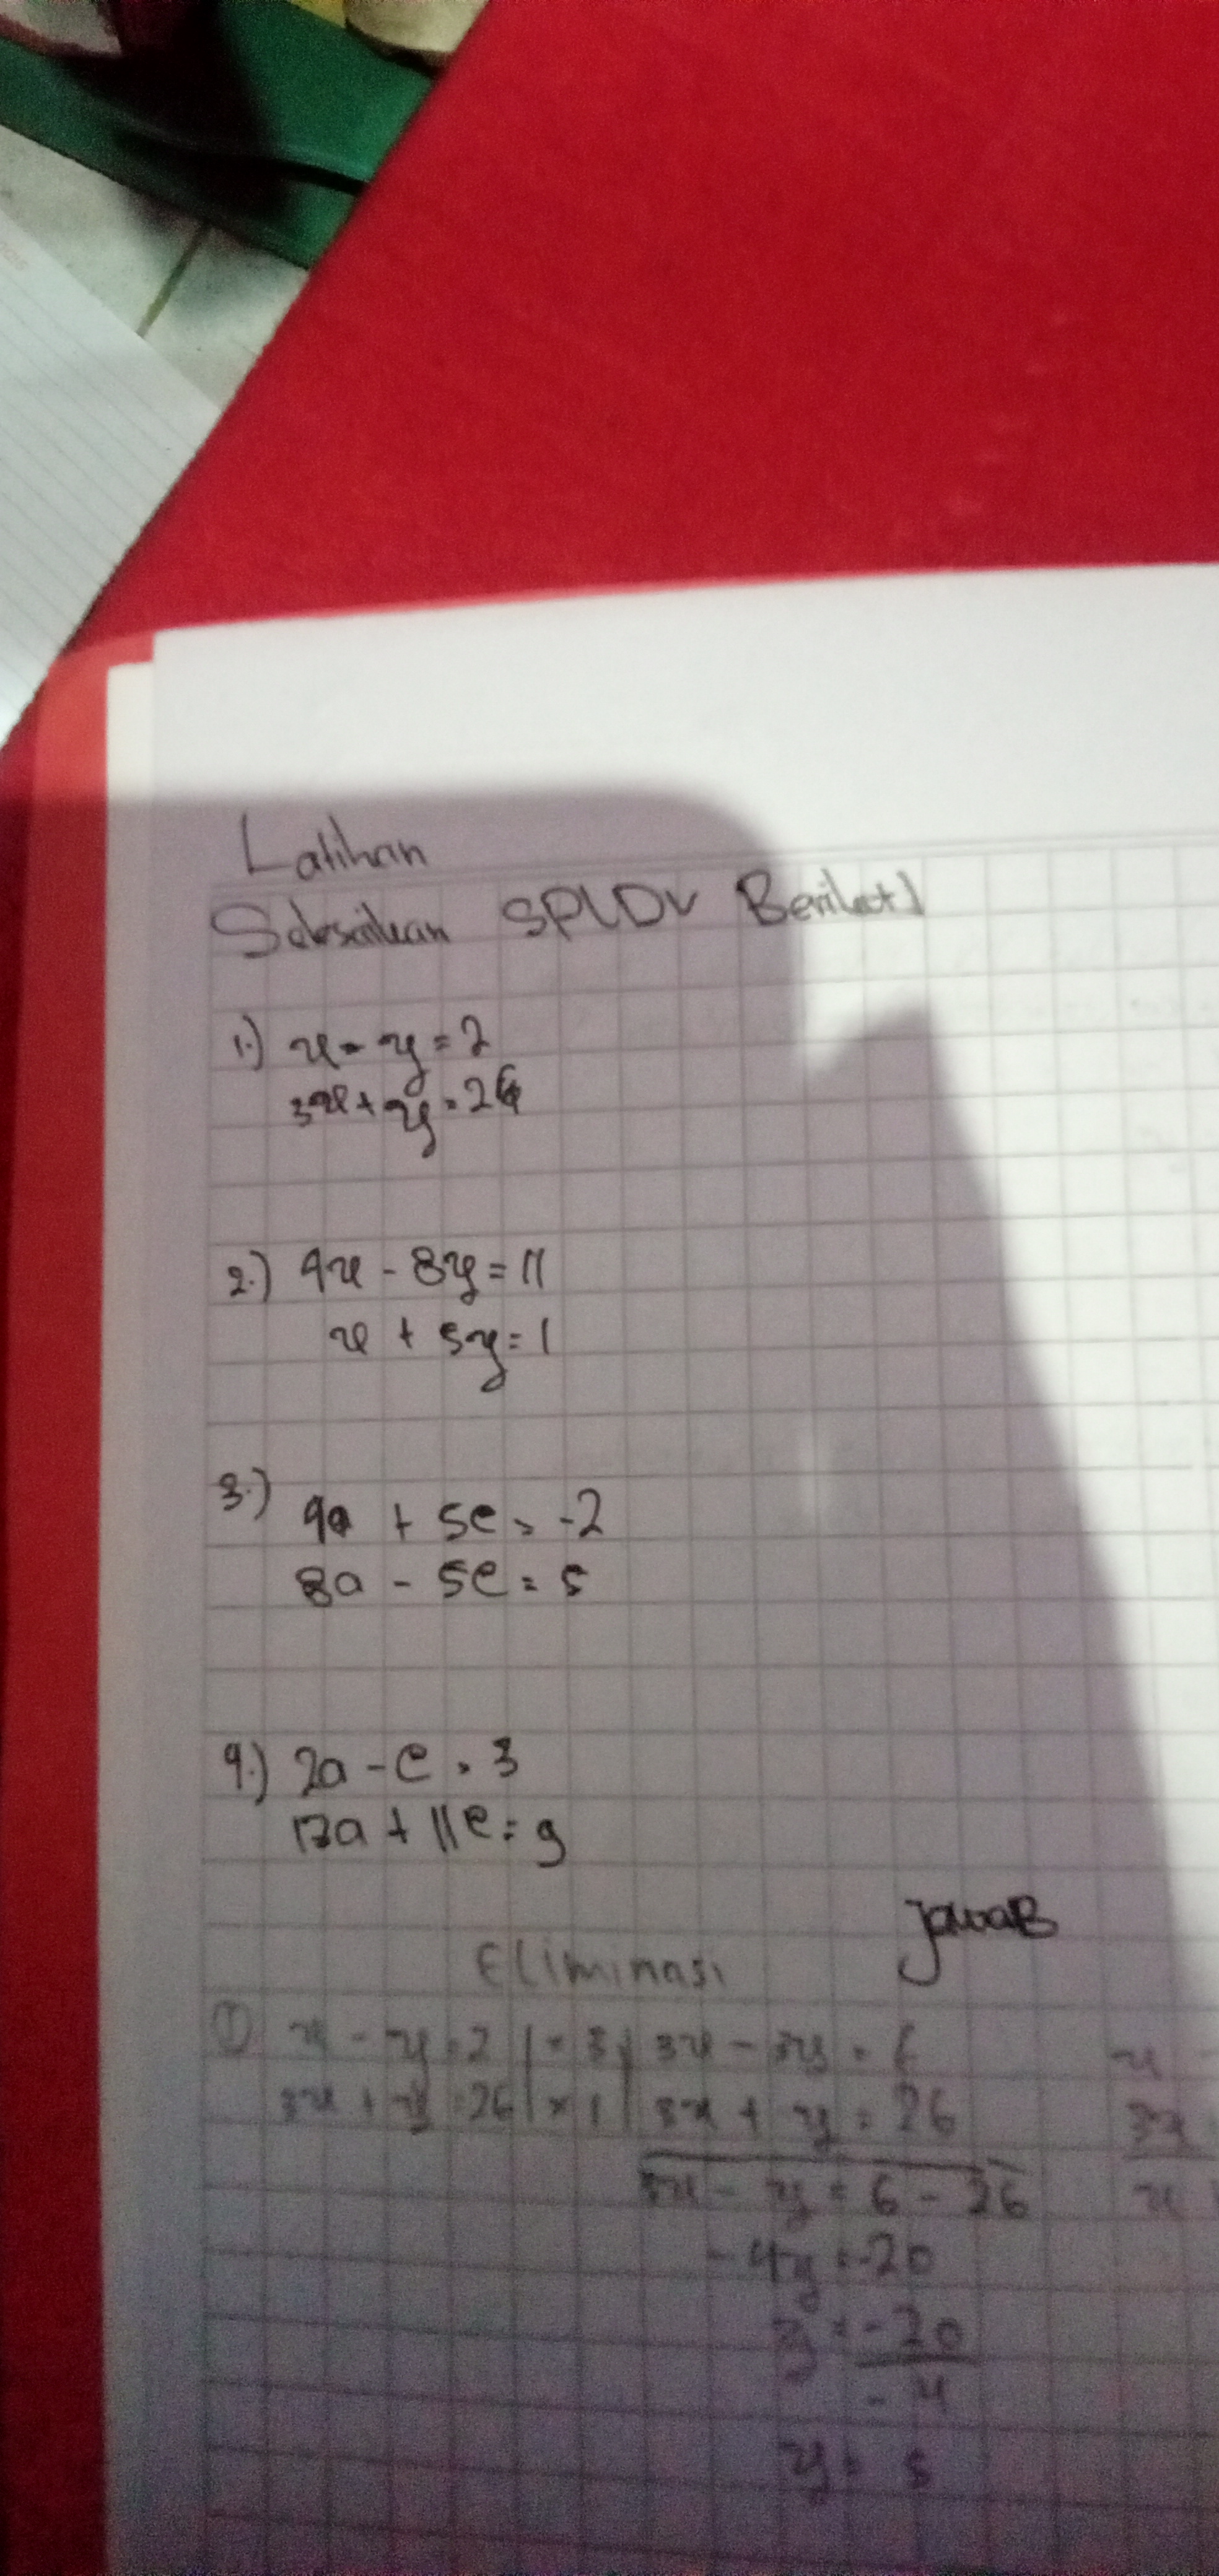 Latihan
Selesaikan SPLDV Berikut!
1.) x - y = 2
3x + y = 26
2.) 4x - 8y = 11
x + 5y = 1
3.) 4a + 5e = -2
8a - 5e = 5
4.) 2a - e = 3
17a + 11e = 9
Jawab
Eliminasi
① x - y = 2 | × 3 | 3x - 3y = 6
3x + y = 26 | × 1 | 3x + y = 26
3x - y = 6 - 26
-4y = -20
y = -20
-4
y = 5
x -
3x
x